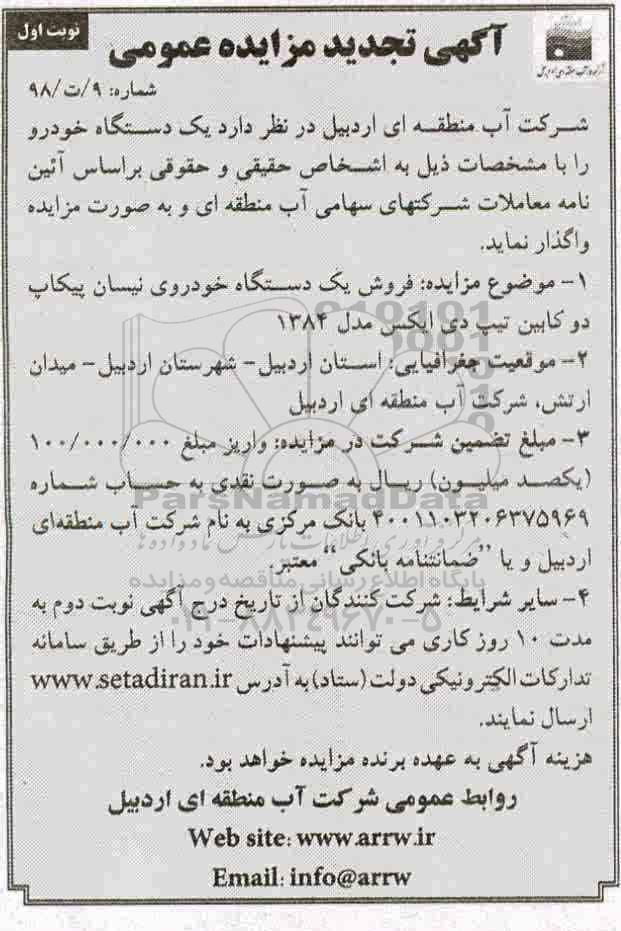 نوبت اول
آگهی تجدید مزایده عمومی
شماره: ۹/ت/۹۸
شرکت آب منطقه ای اردبیل در نظر دارد یک دستگاه خودرو
را با مشخصات ذیل به اشخاص حقیقی و حقوقی براساس آئین
نامه معاملات شرکتهای سهامی آب منطقه ای و به صورت مزایده
واگذار نماید.
۱- موضوع مزایده: فروش یک دستگاه خودروی نیسان پیکاپ
دو کابین تیپ دی ایکس مدل ۱۳۸۴
۲- موقعیت جغرافیایی: استان اردبیل- شهرستان اردبیل- میدان
ارتش، شرکت آب منطقه ای اردبیل
۳- مبلغ تضمین شرکت در مزایده: واریز مبلغ ۱۰۰/۰۰۰/۰۰۰
(یکصد میلیون) ریال به صورت نقدی به حساب شماره
۴۰۰۱۱۰۳۲۰۶۳۷۵۹۶۹ بانک مرکزی به نام شرکت آب منطقه‌ای
اردبیل و یا "ضمانتنامه بانکی" معتبر.
۴- سایر شرایط: شرکت کنندگان از تاریخ درج آگهی نوبت دوم به
مدت ۱۰ روز کاری می توانند پیشنهادات خود را از طریق سامانه
تدارکات الکترونیکی دولت (ستاد) به آدرس www.setadiran.ir
ارسال نمایند.
هزینه آگهی به عهده برنده مزایده خواهد بود.
روابط عمومی شرکت آب منطقه ای اردبیل
Web site: www.arrw.ir
Email: info@arrw
ParsNamadData
پایگاه اطلاع رسانی مناقصه و مزایده
۰۲۱-۸۸۳۴۹۶۷۰-۵